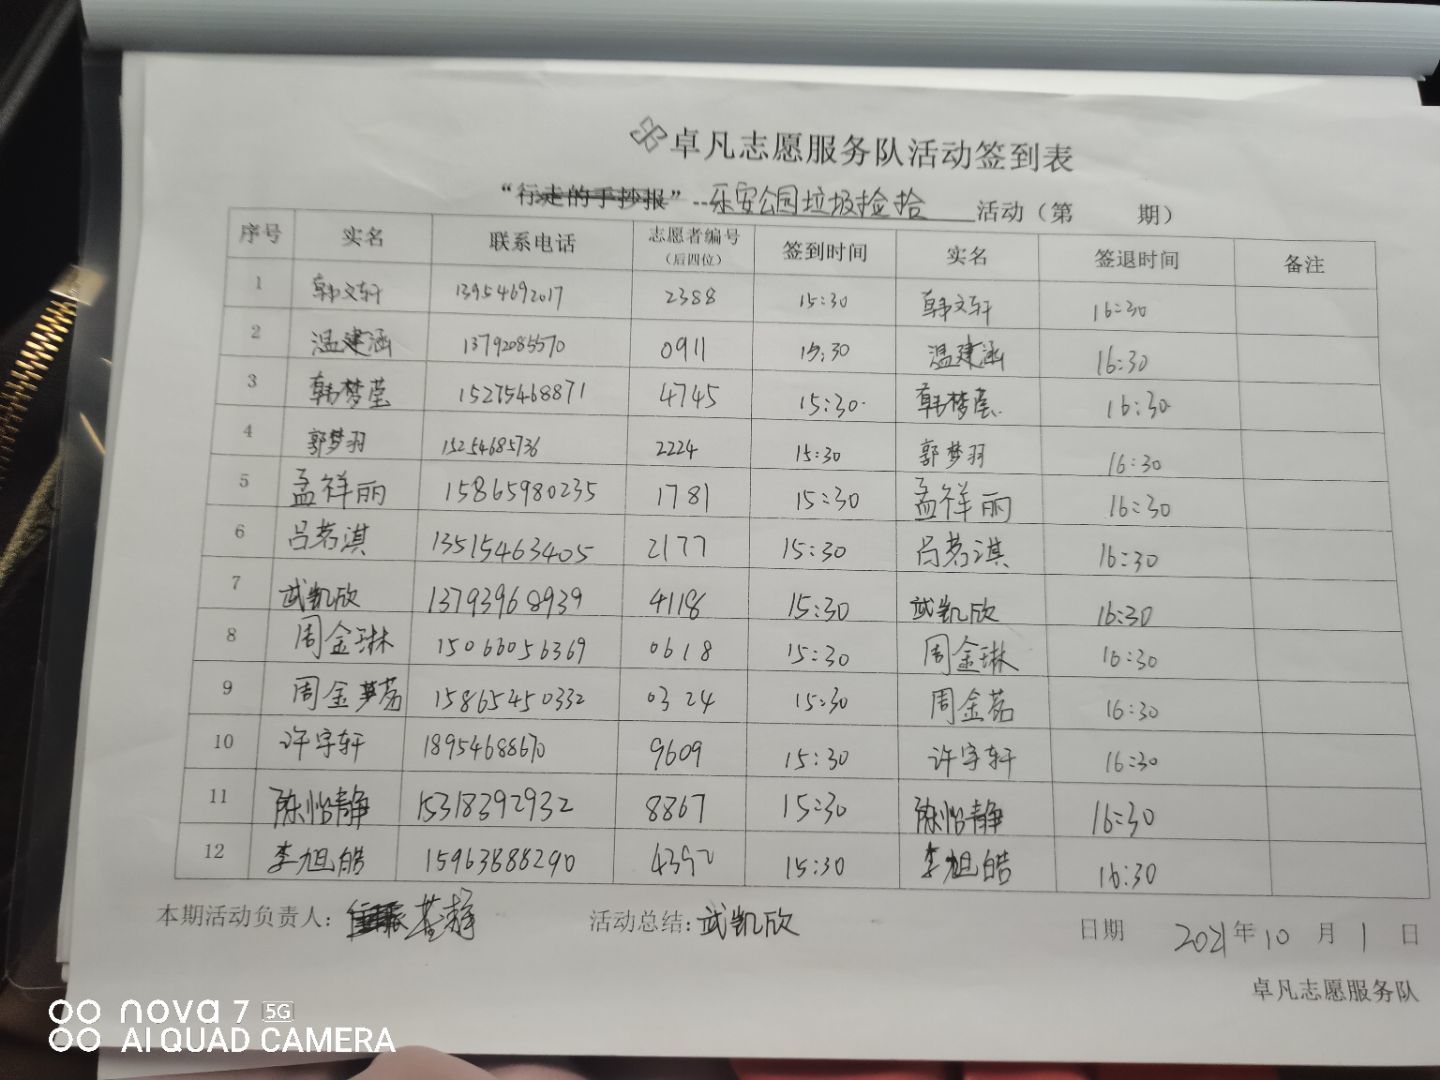 卓凡志愿服务队活动签到表
“行走的手抄报”--乐安公园垃圾捡拾 活动（第 期）
序号 实名 联系电话 志愿者编号（后四位） 签到时间 实名 签退时间 备注
1 韩文轩 13954692017 2388 15:30 韩文轩 16:30
2 温建涵 13792085570 0911 15:30 温建涵 16:30
3 韩梦莹 15275468871 4745 15:30 韩梦莹 16:30
4 郭梦羽 15254685736 2224 15:30 郭梦羽 16:30
5 孟祥丽 15865980235 1781 15:30 孟祥丽 16:30
6 吕茗淇 13515463405 2177 15:30 吕茗淇 16:30
7 武凯欣 13793968939 4118 15:30 武凯欣 16:30
8 周金琳 15066056369 0618 15:30 周金琳 16:30
9 周金茹 15865450332 0324 15:30 周金茹 16:30
10 许宇轩 18954688670 9609 15:30 许宇轩 16:30
11 陈怡静 15318392932 8867 15:30 陈怡静 16:30
12 李旭皓 15963888290 4392 15:30 李旭皓 16:30
本期活动负责人： 活动总结：武凯欣 日期 2021年10月1日
卓凡志愿服务队
nova 7 5G
AI QUAD CAMERA